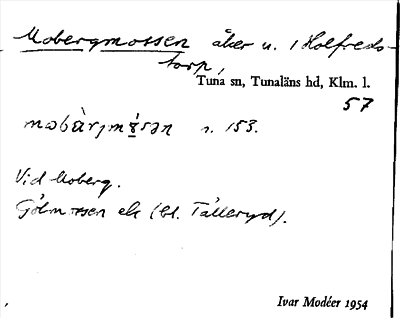 Mobergmossen åker u. 1 Holfreds-
torp,
Tuna sn, Tunaläns hd, Klm. l.
57
məbàrjmɤ́sən n. 153.
Vid Moberg.
Gölmossen el. (bl. Tålleryd).
Ivar Modéer 1954